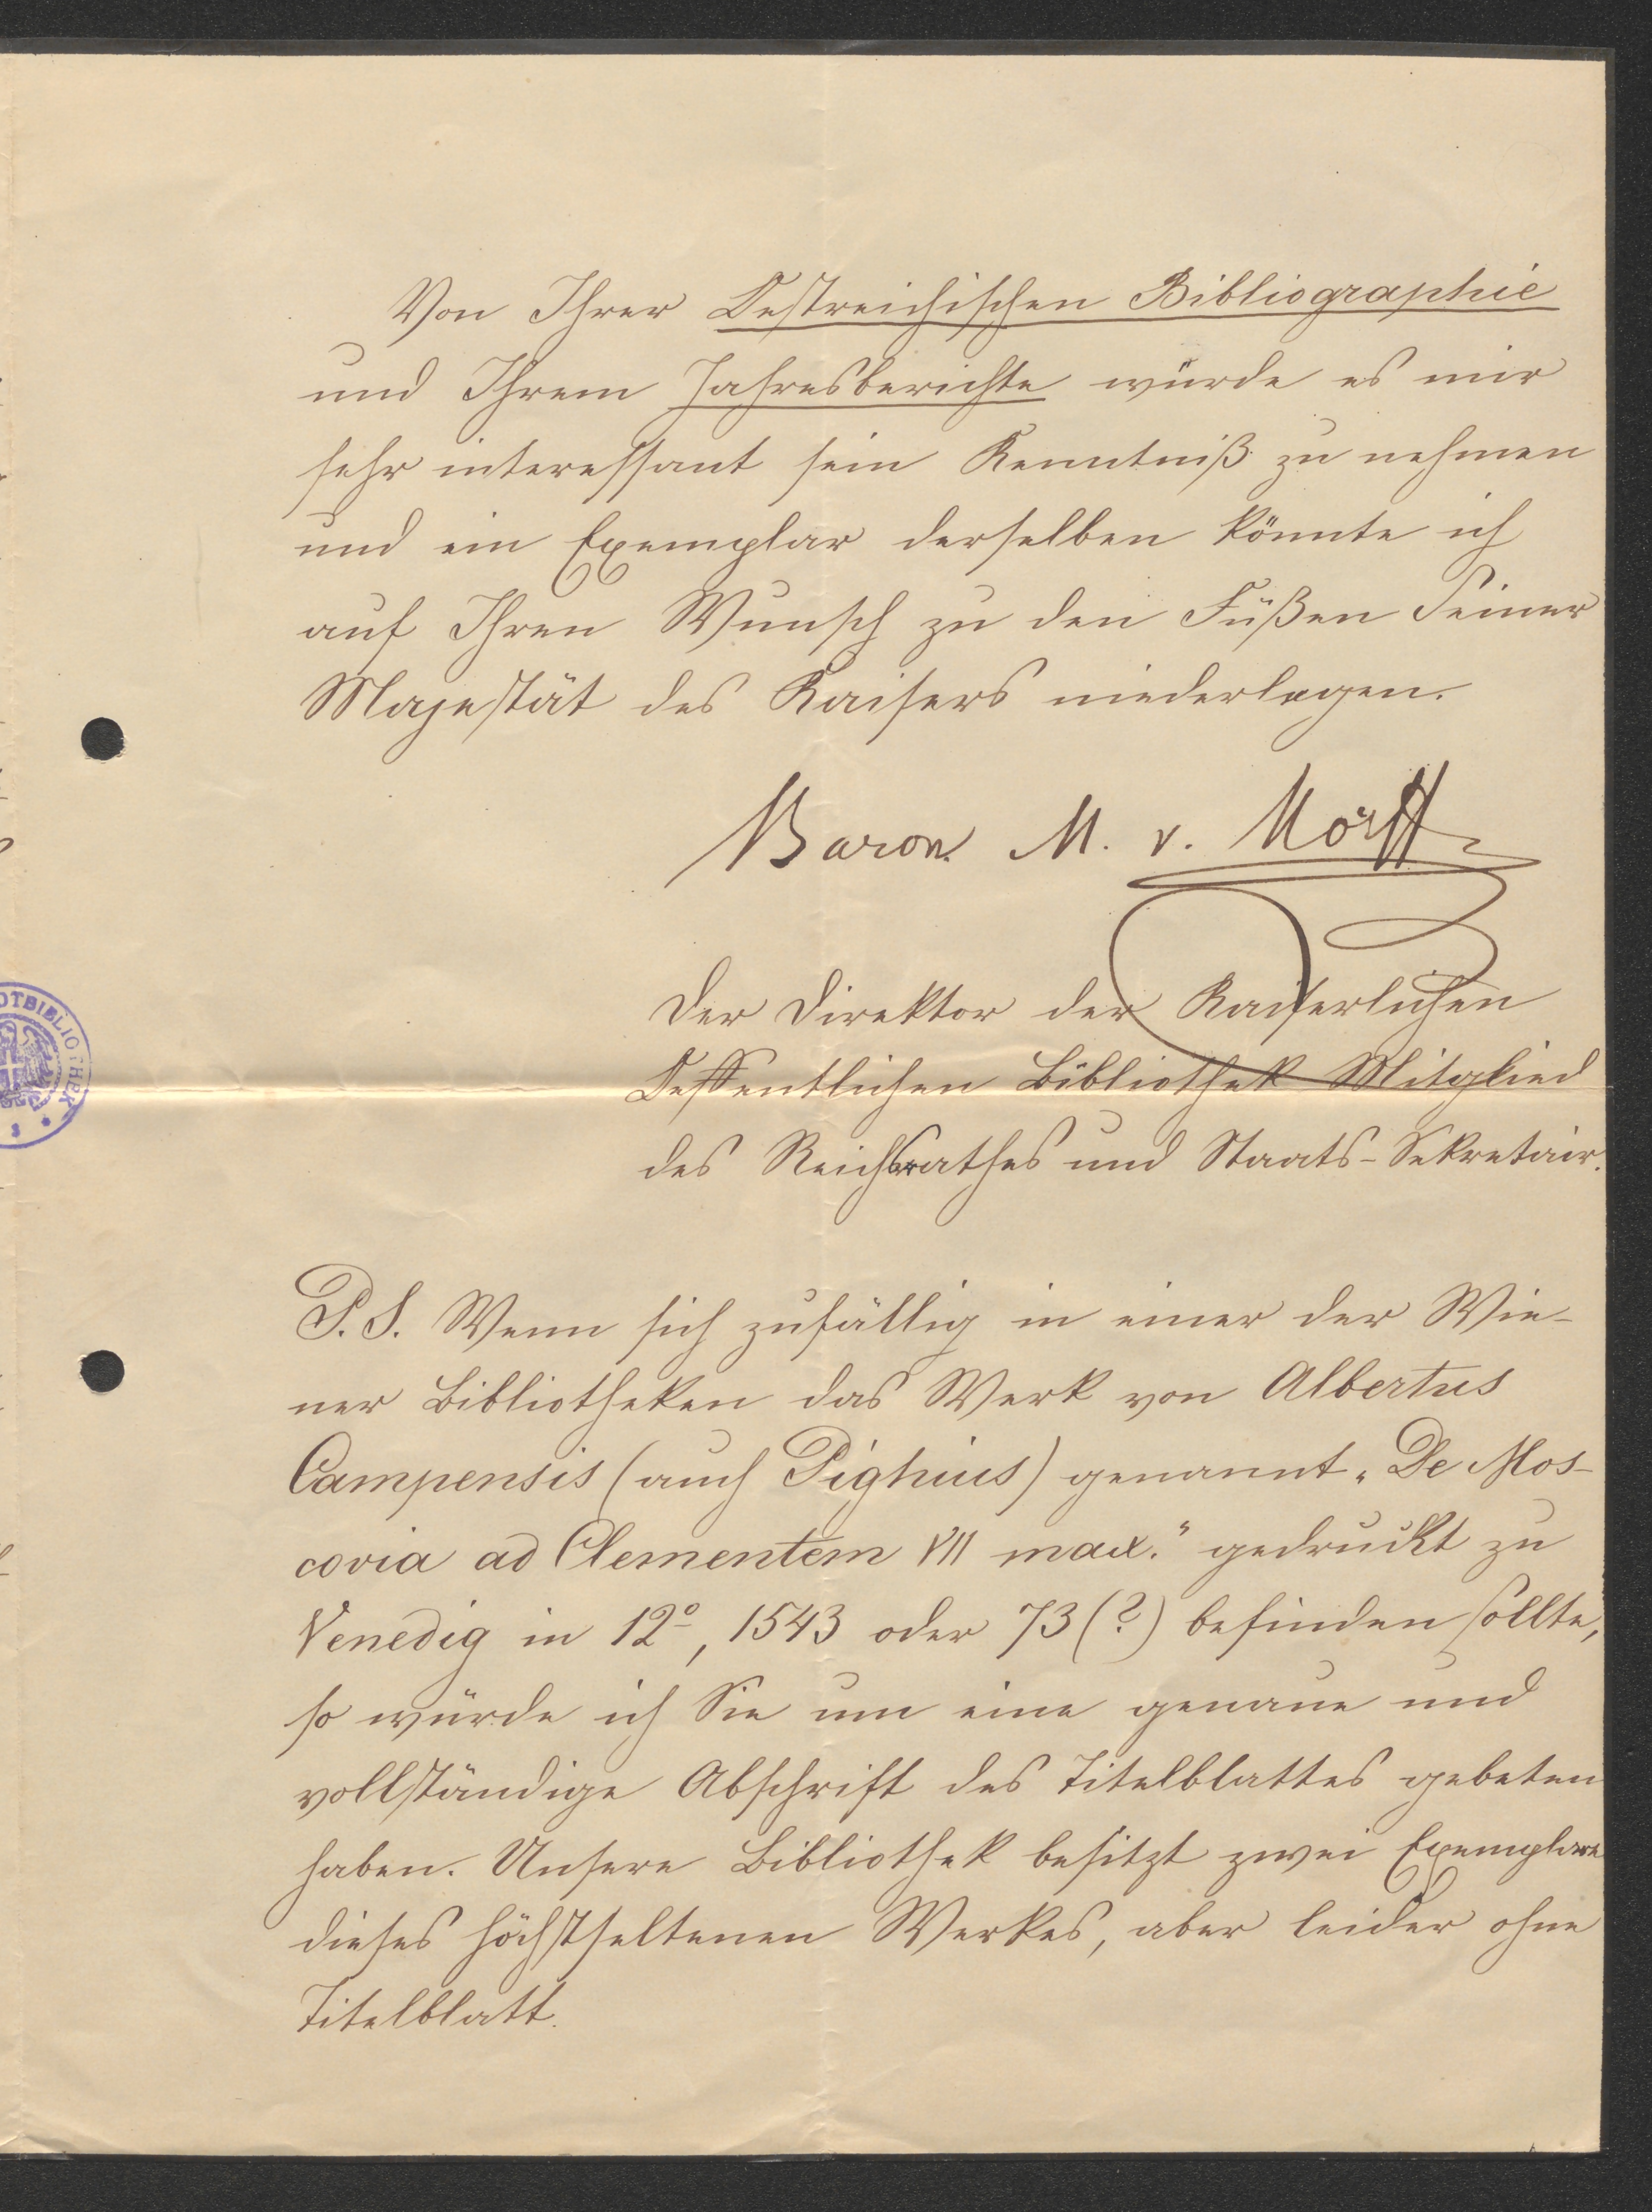 Von Ihrer Oestreichischen Bibliographie
und Ihrem Jahresberichte würde es mir
sehr interessant sein Kenntniß zu nehmen
und ein Exemplar derselben könnte ich
auf Ihren Wunsch zu den Füßen Seiner
Majestät des Kaisers niederlegen.
Baron M. v. Korff
Der Direktor der Kaiserlichen
Oeffentlichen Bibliothek Mitglied
des Reichsrathes und Staats-Sekretair.
P.S. Wenn sich zufällig in einer der Wie-
ner Bibliotheken das Werk von Albertus
Campensis (auch Pighius) genannt „De Mos-
covia ad Clementem VII max." gedruckt zu
Venedig in 12º, 1543 oder 73 (?) befinden sollte,
so würde ich Sie um eine genaue und
vollständige Abschrift des Titelblattes gebeten
haben. Unsere Bibliothek besitzt zwei Exemplare
dieses höchstseltenen Werkes, aber leider ohne
Titelblatt.